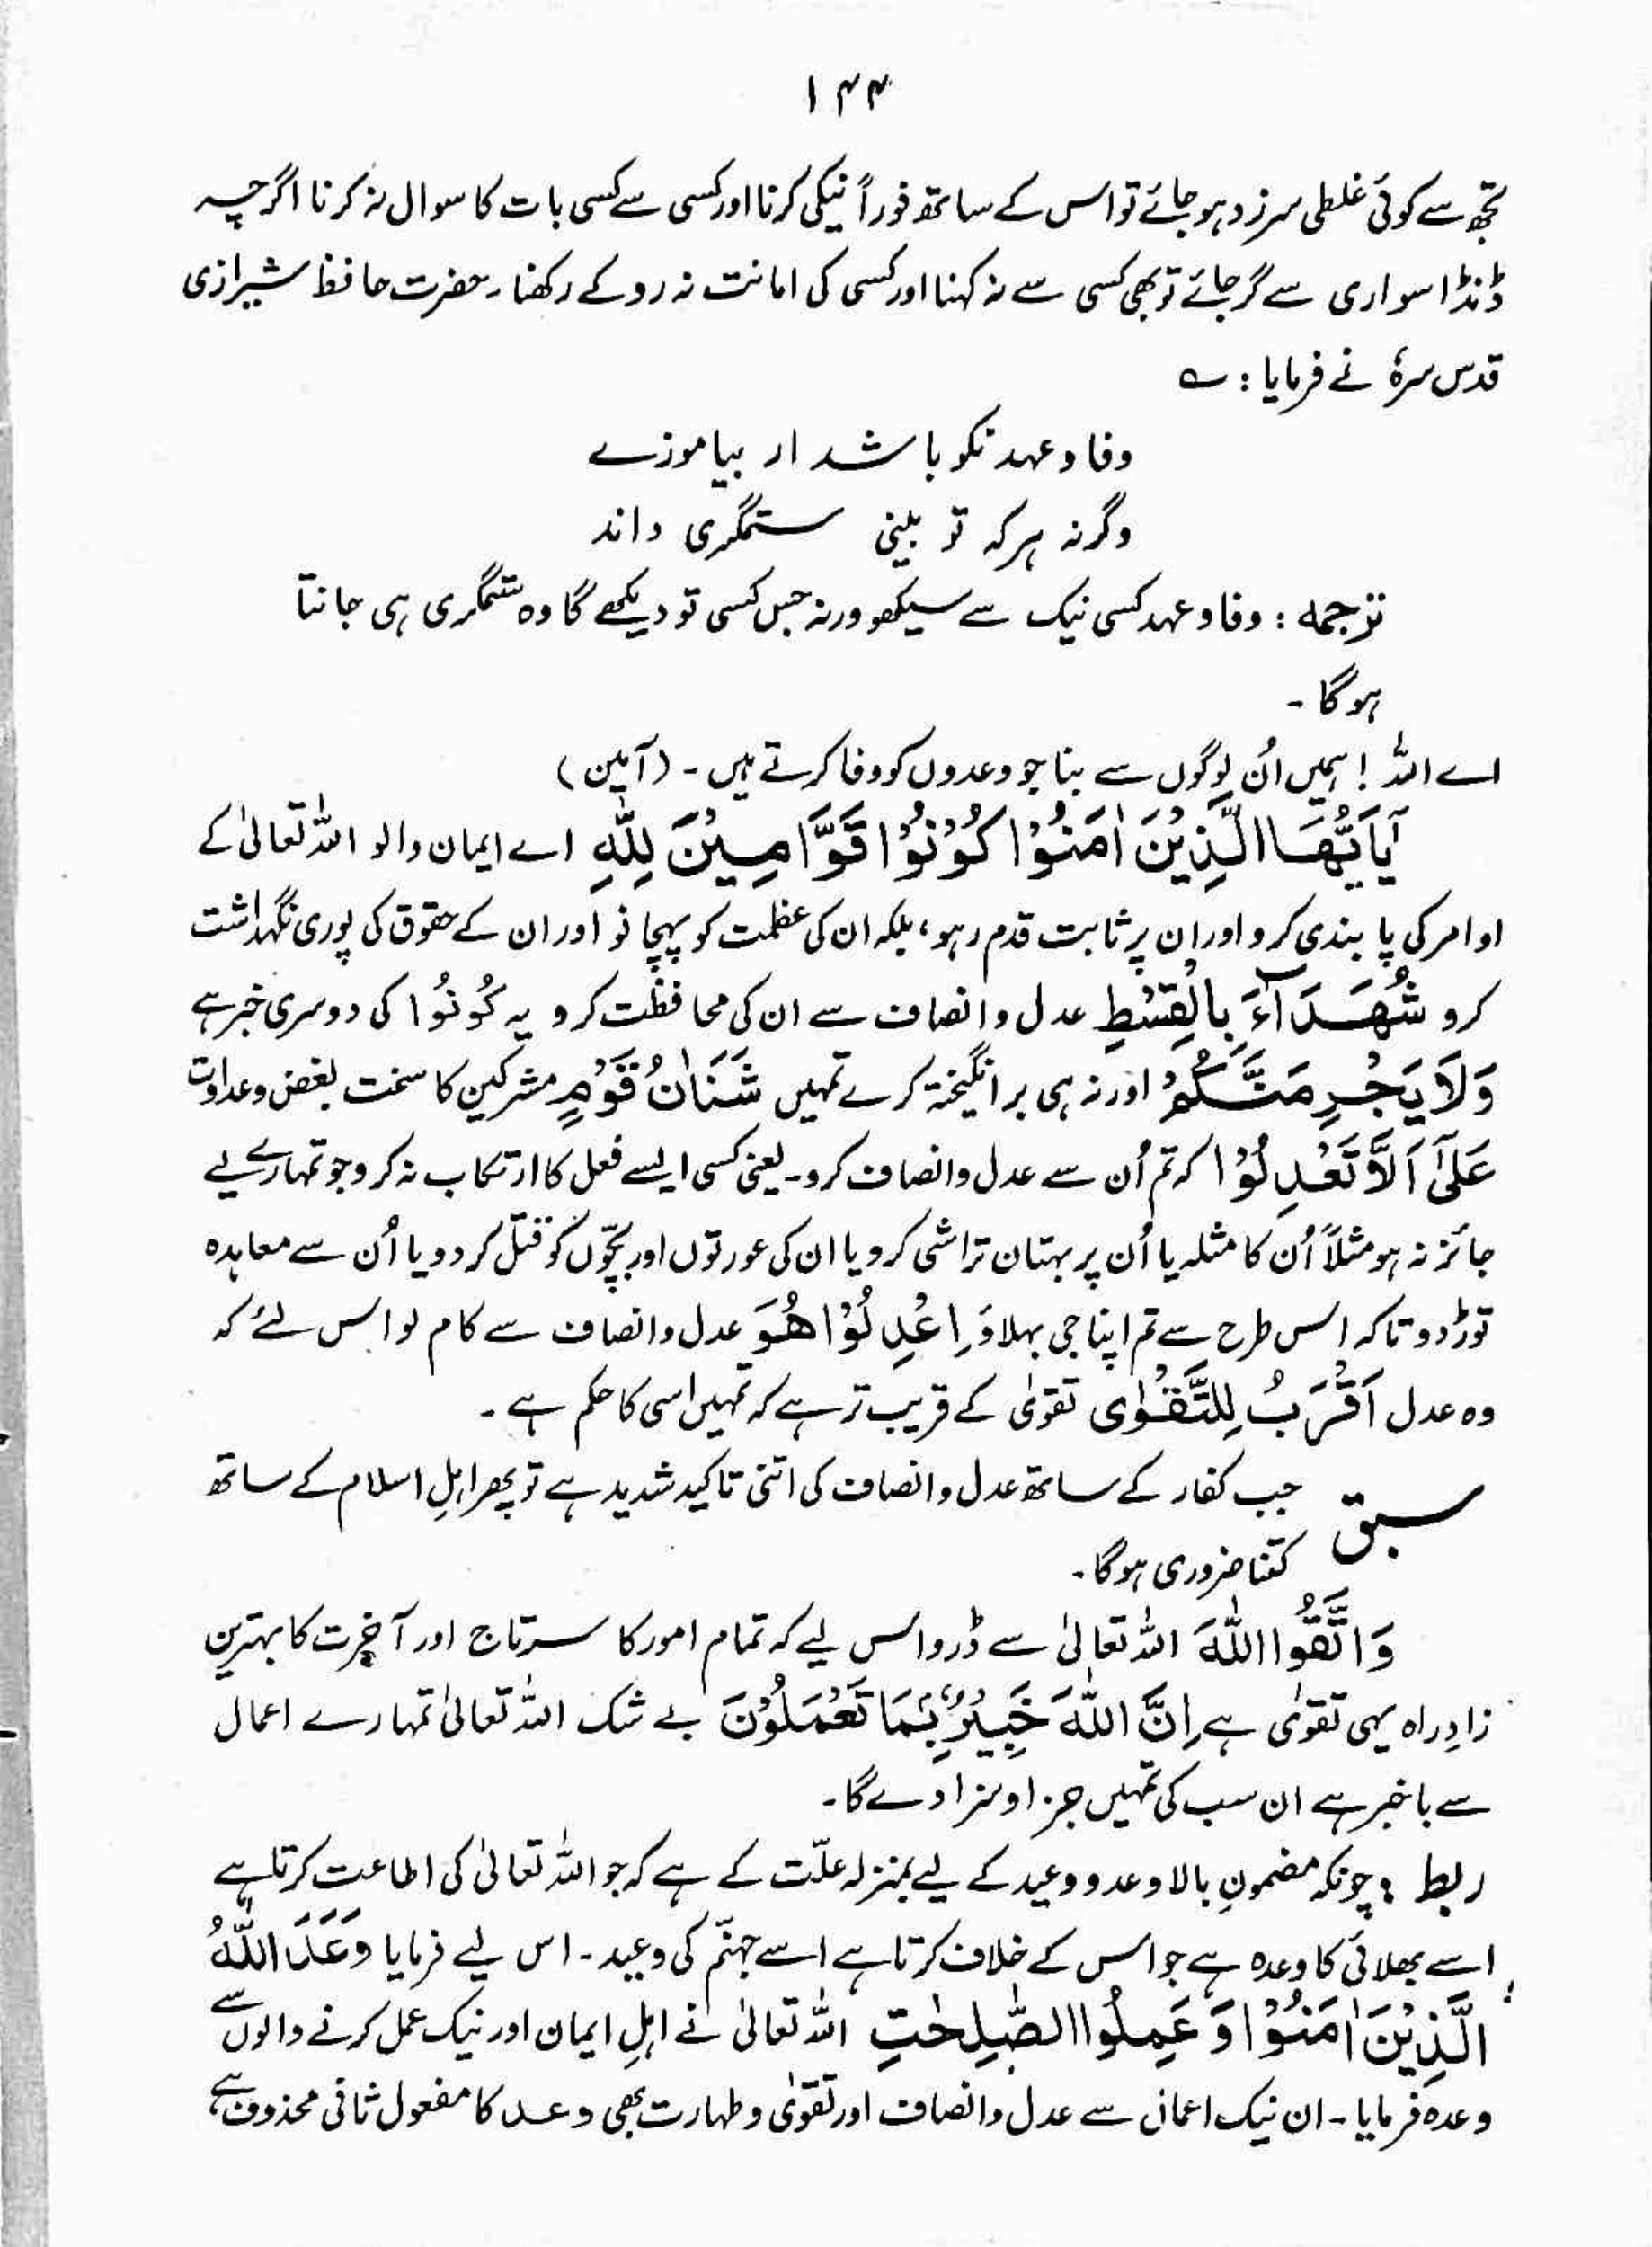 ۱۴۴
تجھ سے کوئی غلطی سرزد ہو جائے تو اس کے ساتھ فوراً نیکی کرنا اور کسی سے کسی بات کا سوال نہ کرنا اگرچہ
ڈنڈا سواری سے گر جائے تو بھی کسی سے نہ کہنا اور کسی کی امانت نہ روکے رکھنا۔ حضرت حافظ شیرازی
قدس سرہٗ نے فرمایا : ؎
وفا و عہد نکو باشد ار بیاموزے
وگرنہ ہر کہ تو بینی ستمگری داند
ترجمہ : وفا و عہد کسی نیک سے سیکھو ورنہ جس کسی تو دیکھے گا وہ ستمگری ہی جانتا
ہوگا۔
اے اللہ ! ہمیں اُن لوگوں سے بنا جو وعدوں کو وفا کرتے ہیں۔ (آمین)
یٰۤاَیُّهَا الَّذِیْنَ اٰمَنُوْا كُوْنُوْا قَوَّامِیْنَ لِلّٰهِ اے ایمان والو اللہ تعالیٰ کے
اوامر کی پابندی کرو اور ان پر ثابت قدم رہو، بلکہ ان کی عظمت کو پہچانو اور ان کے حقوق کی پوری نگہداشت
کرو شُهَدَآءَ بِالْقِسْطِ عدل و انصاف سے ان کی محافظت کرو یہ کُوْنُوْا کی دوسری خبر ہے
وَلَا یَجْرِمَنَّكُمْ اور نہ ہی برانگیختہ کرے تمہیں شَنَاٰنُ قَوْمٍ مشرکین کا سخت بغض و عداوت
عَلٰۤى اَلَّا تَعْدِلُوْا کہ تم اُن سے عدل و انصاف کرو۔ یعنی کسی ایسے فعل کا ارتکاب نہ کرو جو تمہارے لیے
جائز نہ ہو مثلاً اُن کا مثلہ یا اُن پر بہتان تراشی کرو یا ان کی عورتوں اور بچّوں کو قتل کر دو یا اُن سے معاہدہ
توڑ دو تاکہ اس طرح سے تم اپنا جی بہلاؤ اِعْدِلُوْا هُوَ عدل و انصاف سے کام لو اس لئے کہ
وہ عدل اَقْرَبُ لِلتَّقْوٰى تقویٰ کے قریب تر ہے کہ تمہیں اسی کا حکم ہے۔
سبق جب کفار کے ساتھ عدل و انصاف کی اتنی تاکید شدید ہے تو پھر اہلِ اسلام کے ساتھ
کتنا ضروری ہوگا۔
وَاتَّقُوا اللّٰهَ اللہ تعالیٰ سے ڈرو اس لیے کہ تمام امور کا سرتاج اور آخرت کا بہترین
زادِ راہ یہی تقویٰ ہے اِنَّ اللّٰهَ خَبِیْرٌۢ بِمَا تَعْمَلُوْنَ بے شک اللہ تعالیٰ تمہارے اعمال
سے باخبر ہے ان سب کی تمہیں جزا و سزا دے گا۔
ربط : چونکہ مضمونِ بالا وعدو وعید کے لیے بمنزلہ علّت کے ہے کہ جو اللہ تعالیٰ کی اطاعت کرتا ہے
اسے بھلائی کا وعدہ ہے جو اس کے خلاف کرتا ہے اسے جہنّم کی وعید۔ اس لیے فرمایا وَعَدَ اللّٰهُ
الَّذِیْنَ اٰمَنُوْا وَ عَمِلُوا الصّٰلِحٰتِ اللہ تعالیٰ نے اہلِ ایمان اور نیک عمل کرنے والوں سے
وعدہ فرمایا۔ ان نیک اعمال سے عدل و انصاف اور تقویٰ و طہارت بھی وعد کا مفعول ثانی محذوف ہے،